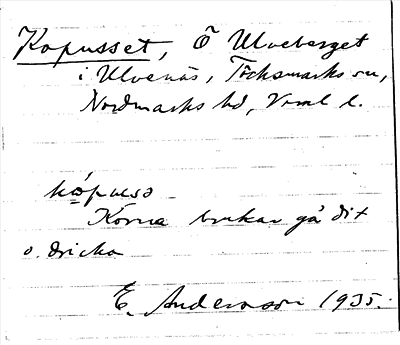 Kopusset, Ö Ulveberget
i Ulvenäs, Töcksmarks sn,
Nordmarks hd, Vrml l.
kópuso
Korna brukar gå dit
o. dricka
E. Andersson 1935.